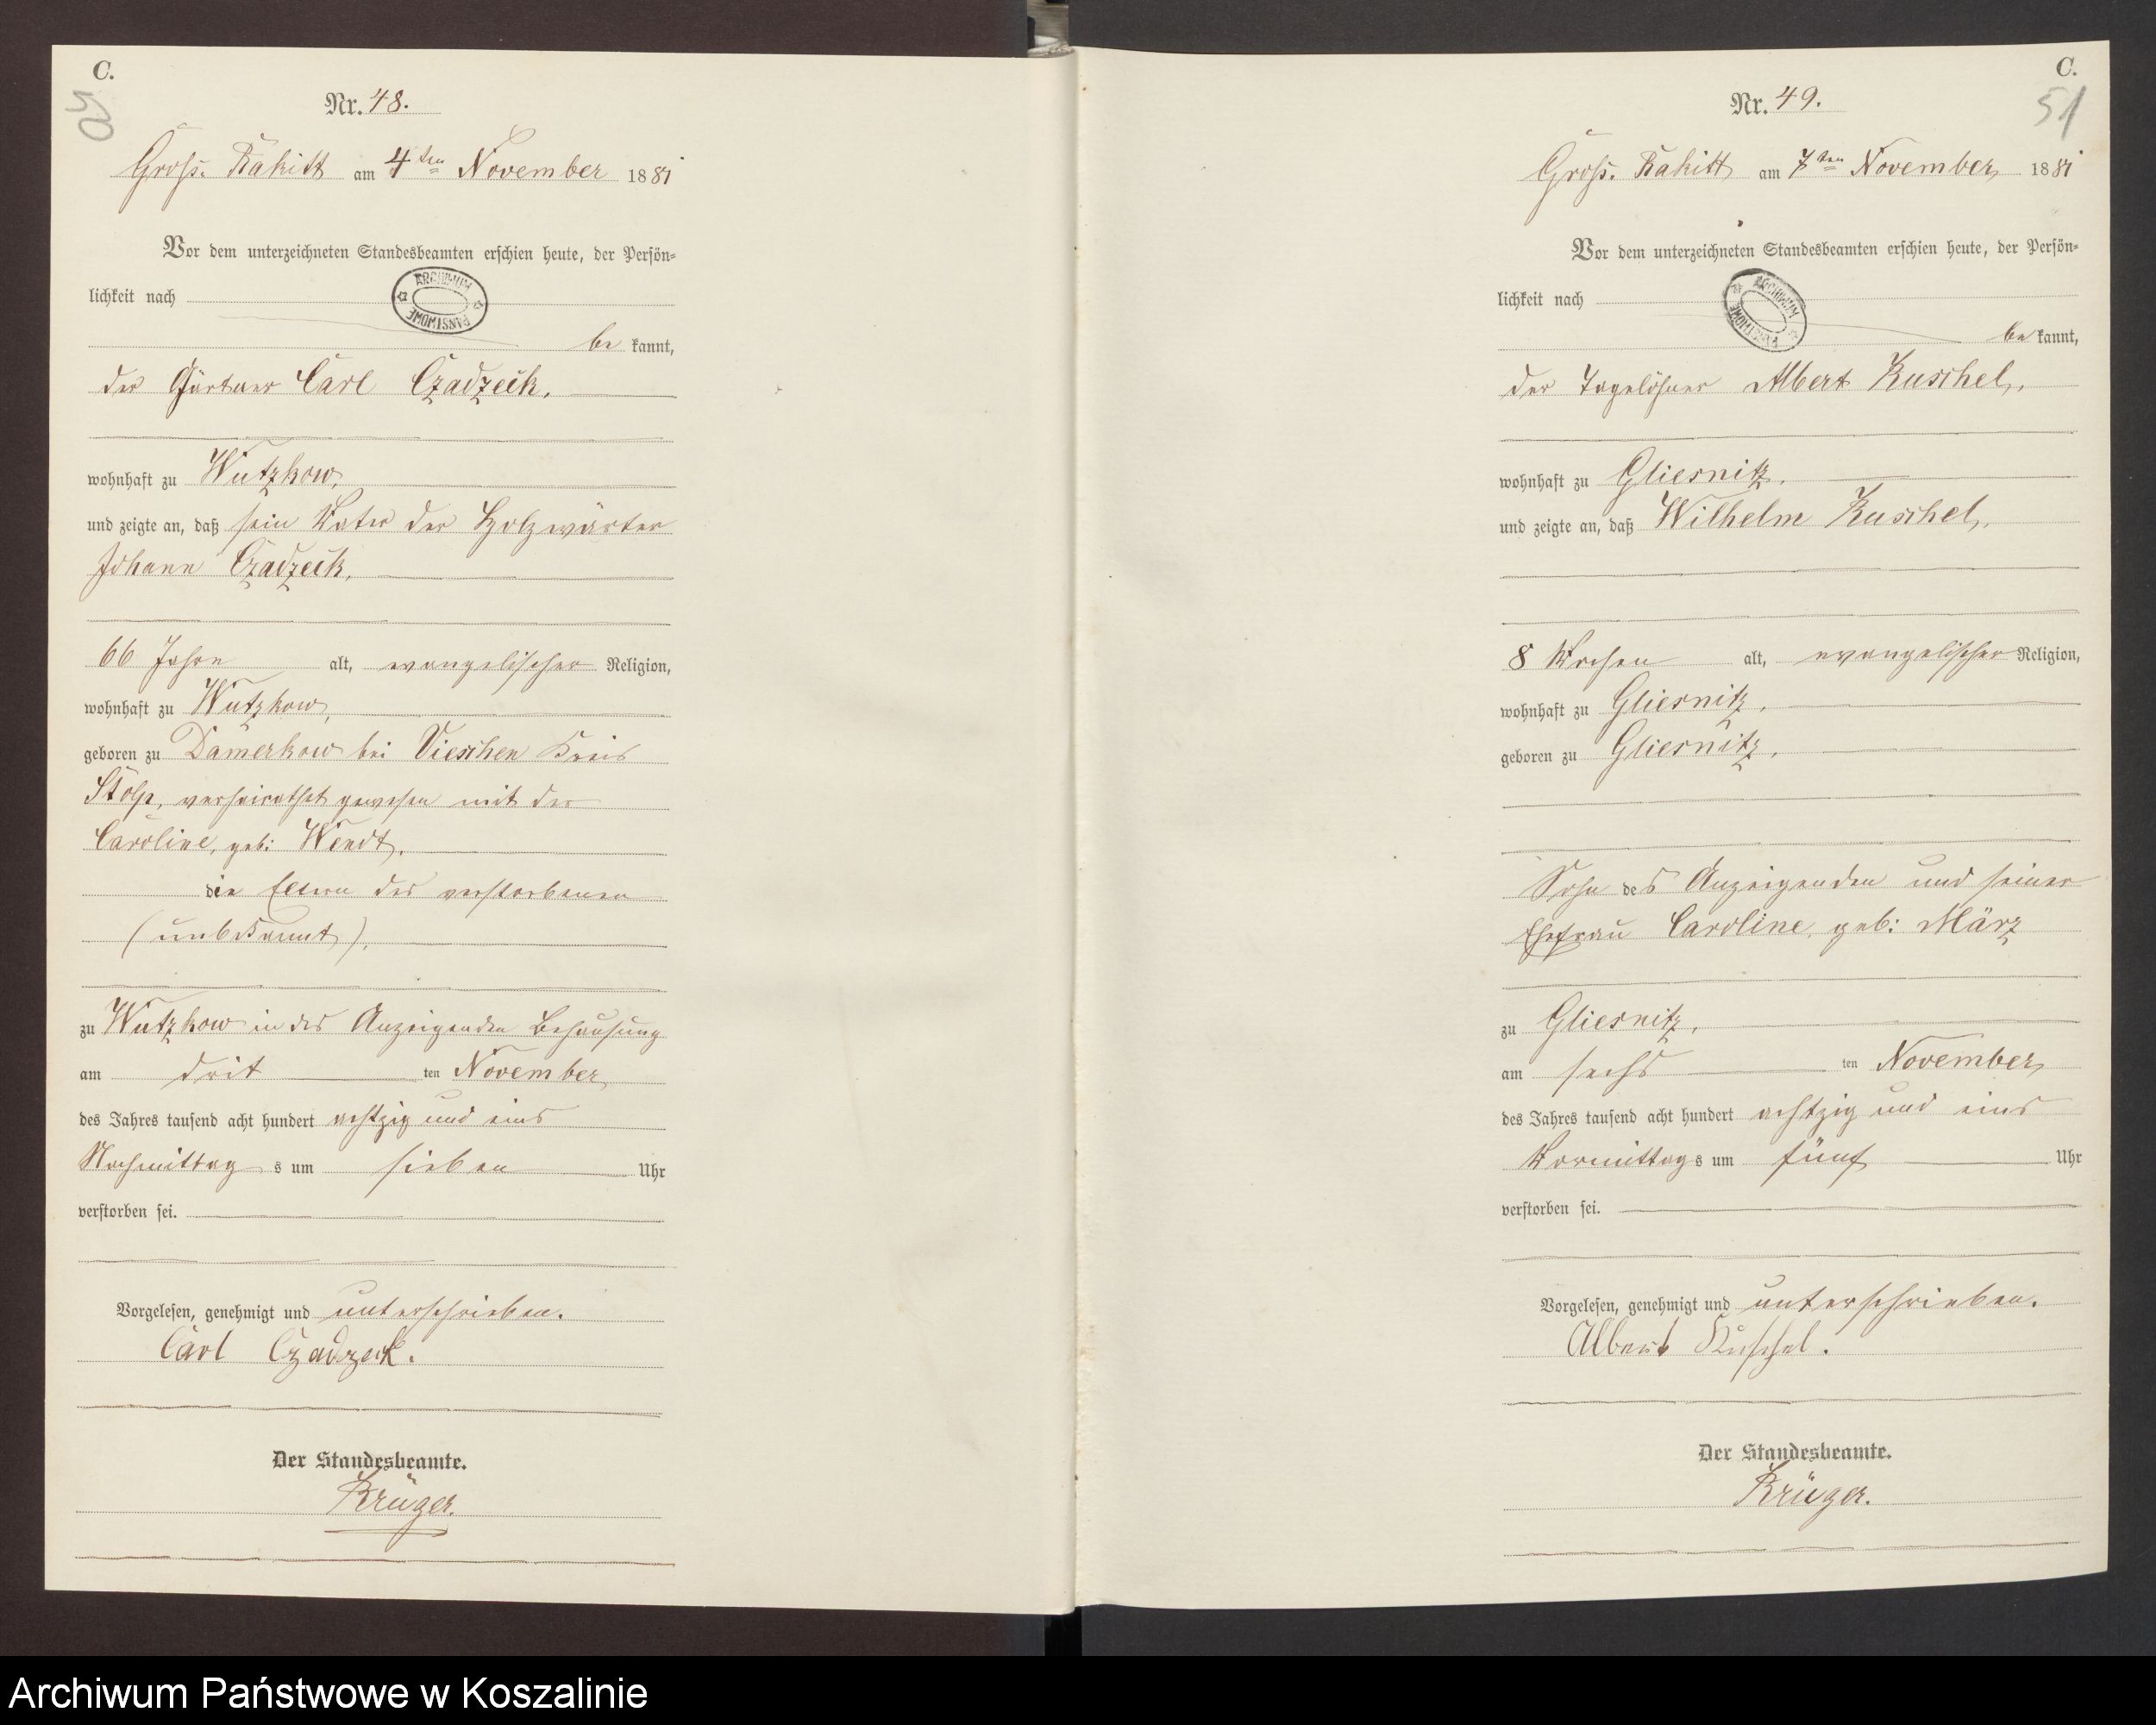 C.
50
Nr. 48.
Gross. Rakitt am 4ten November 1881
Vor dem unterzeichneten Standesbeamten erschien heute, der Persön-
lichkeit nach
ARCHIWUM PAŃSTWOWE
be kannt,
der Gärtner Carl Czadzeck.
wohnhaft zu Wutzkow,
und zeigte an, daß sein Vater der Holzwärter
Johann Czadzeck,
66 Jahre alt, evangelischer Religion,
wohnhaft zu Wutzkow,
geboren zu Damerkow bei Vieschen Kreis
Stolp, verheirathet gewesen mit der
Caroline, geb: Wendt.
die Eltern des verstorbenen
(unbekannt).
zu Wutzkow in des Anzeigenden Behausung
am drit ten November
des Jahres tausend acht hundert achtzig und eins
Nachmittag s um sieben Uhr
verstorben sei.
Vorgelesen, genehmigt und unterschrieben.
Carl Czadzeck.
Der Standesbeamte.
Krüger.
C.
51
Nr. 49.
Gross. Rakitt am 7ten November 1881
Vor dem unterzeichneten Standesbeamten erschien heute, der Persön-
lichkeit nach
ARCHIWUM PAŃSTWOWE
be kannt,
der Tagelöhner Albert Kuschel,
wohnhaft zu Gliesnitz,
und zeigte an, daß Wilhelm Kuschel,
8 Wochen alt, evangelischer Religion,
wohnhaft zu Gliesnitz,
geboren zu Gliesnitz,
Sohn des Anzeigenden und seiner
Ehefrau Caroline, geb: März
zu Gliesnitz,
am sechs ten November,
des Jahres tausend acht hundert achtzig und eins
Vormittag s um fünf Uhr
verstorben sei.
Vorgelesen, genehmigt und unterschrieben.
Albert Kuschel.
Der Standesbeamte.
Krüger.
Archiwum Państwowe w Koszalinie